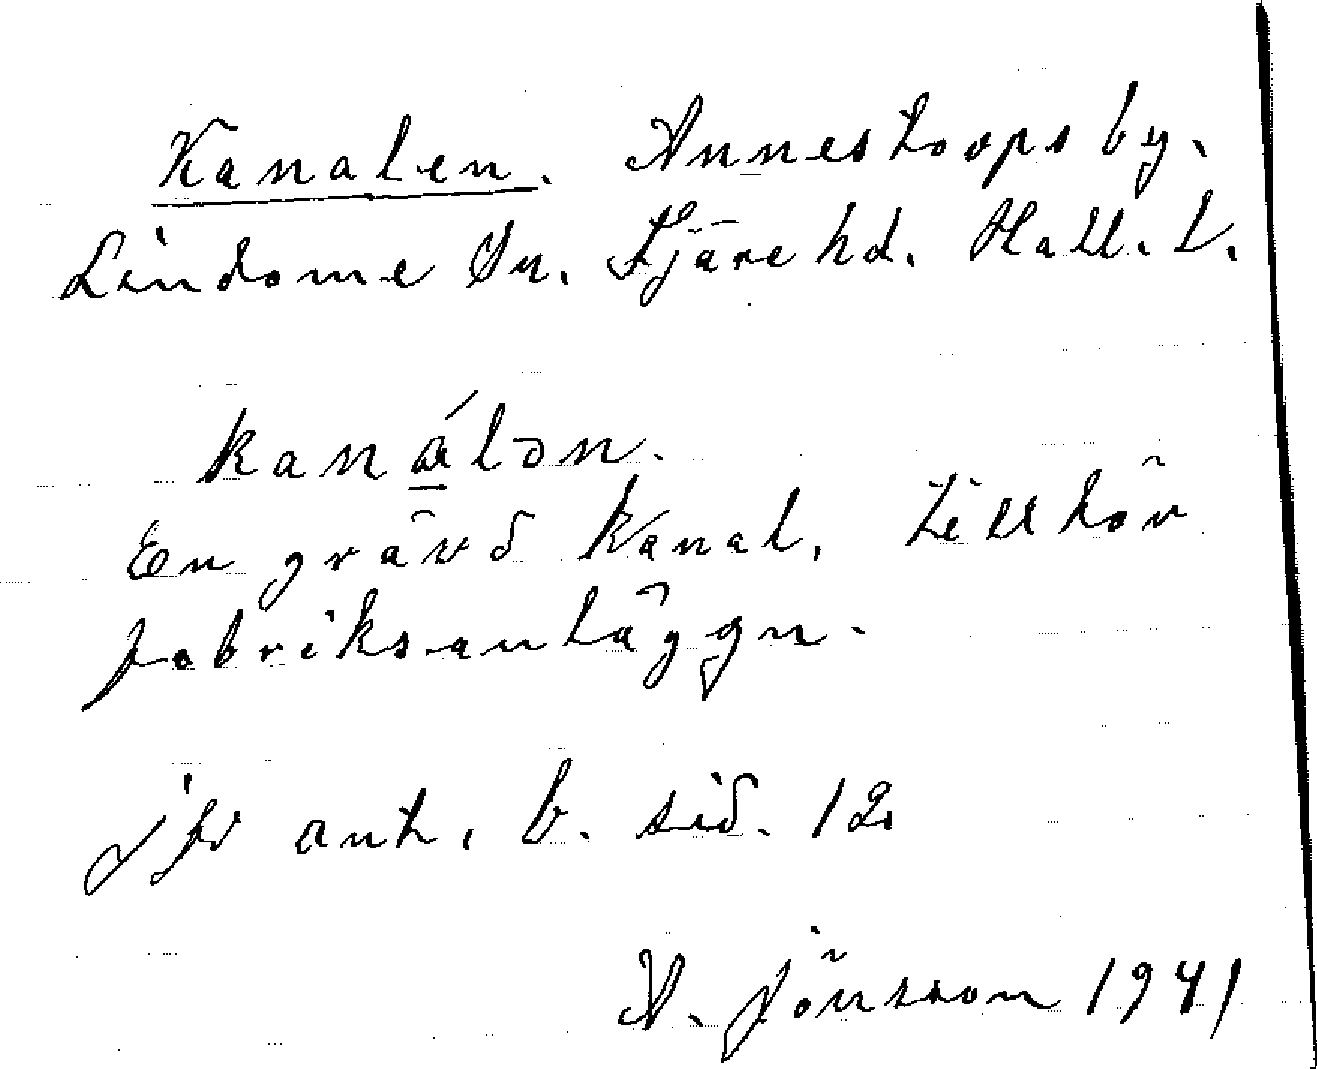 Kanalen. Annestorps by.
Lindome Sn. Fjäre hd. Hall. L.
kanálən.
En grävd kanal, tillhör
fabriksanläggn.
jfr ant. b. sid. 12
A. Jönsson 1941